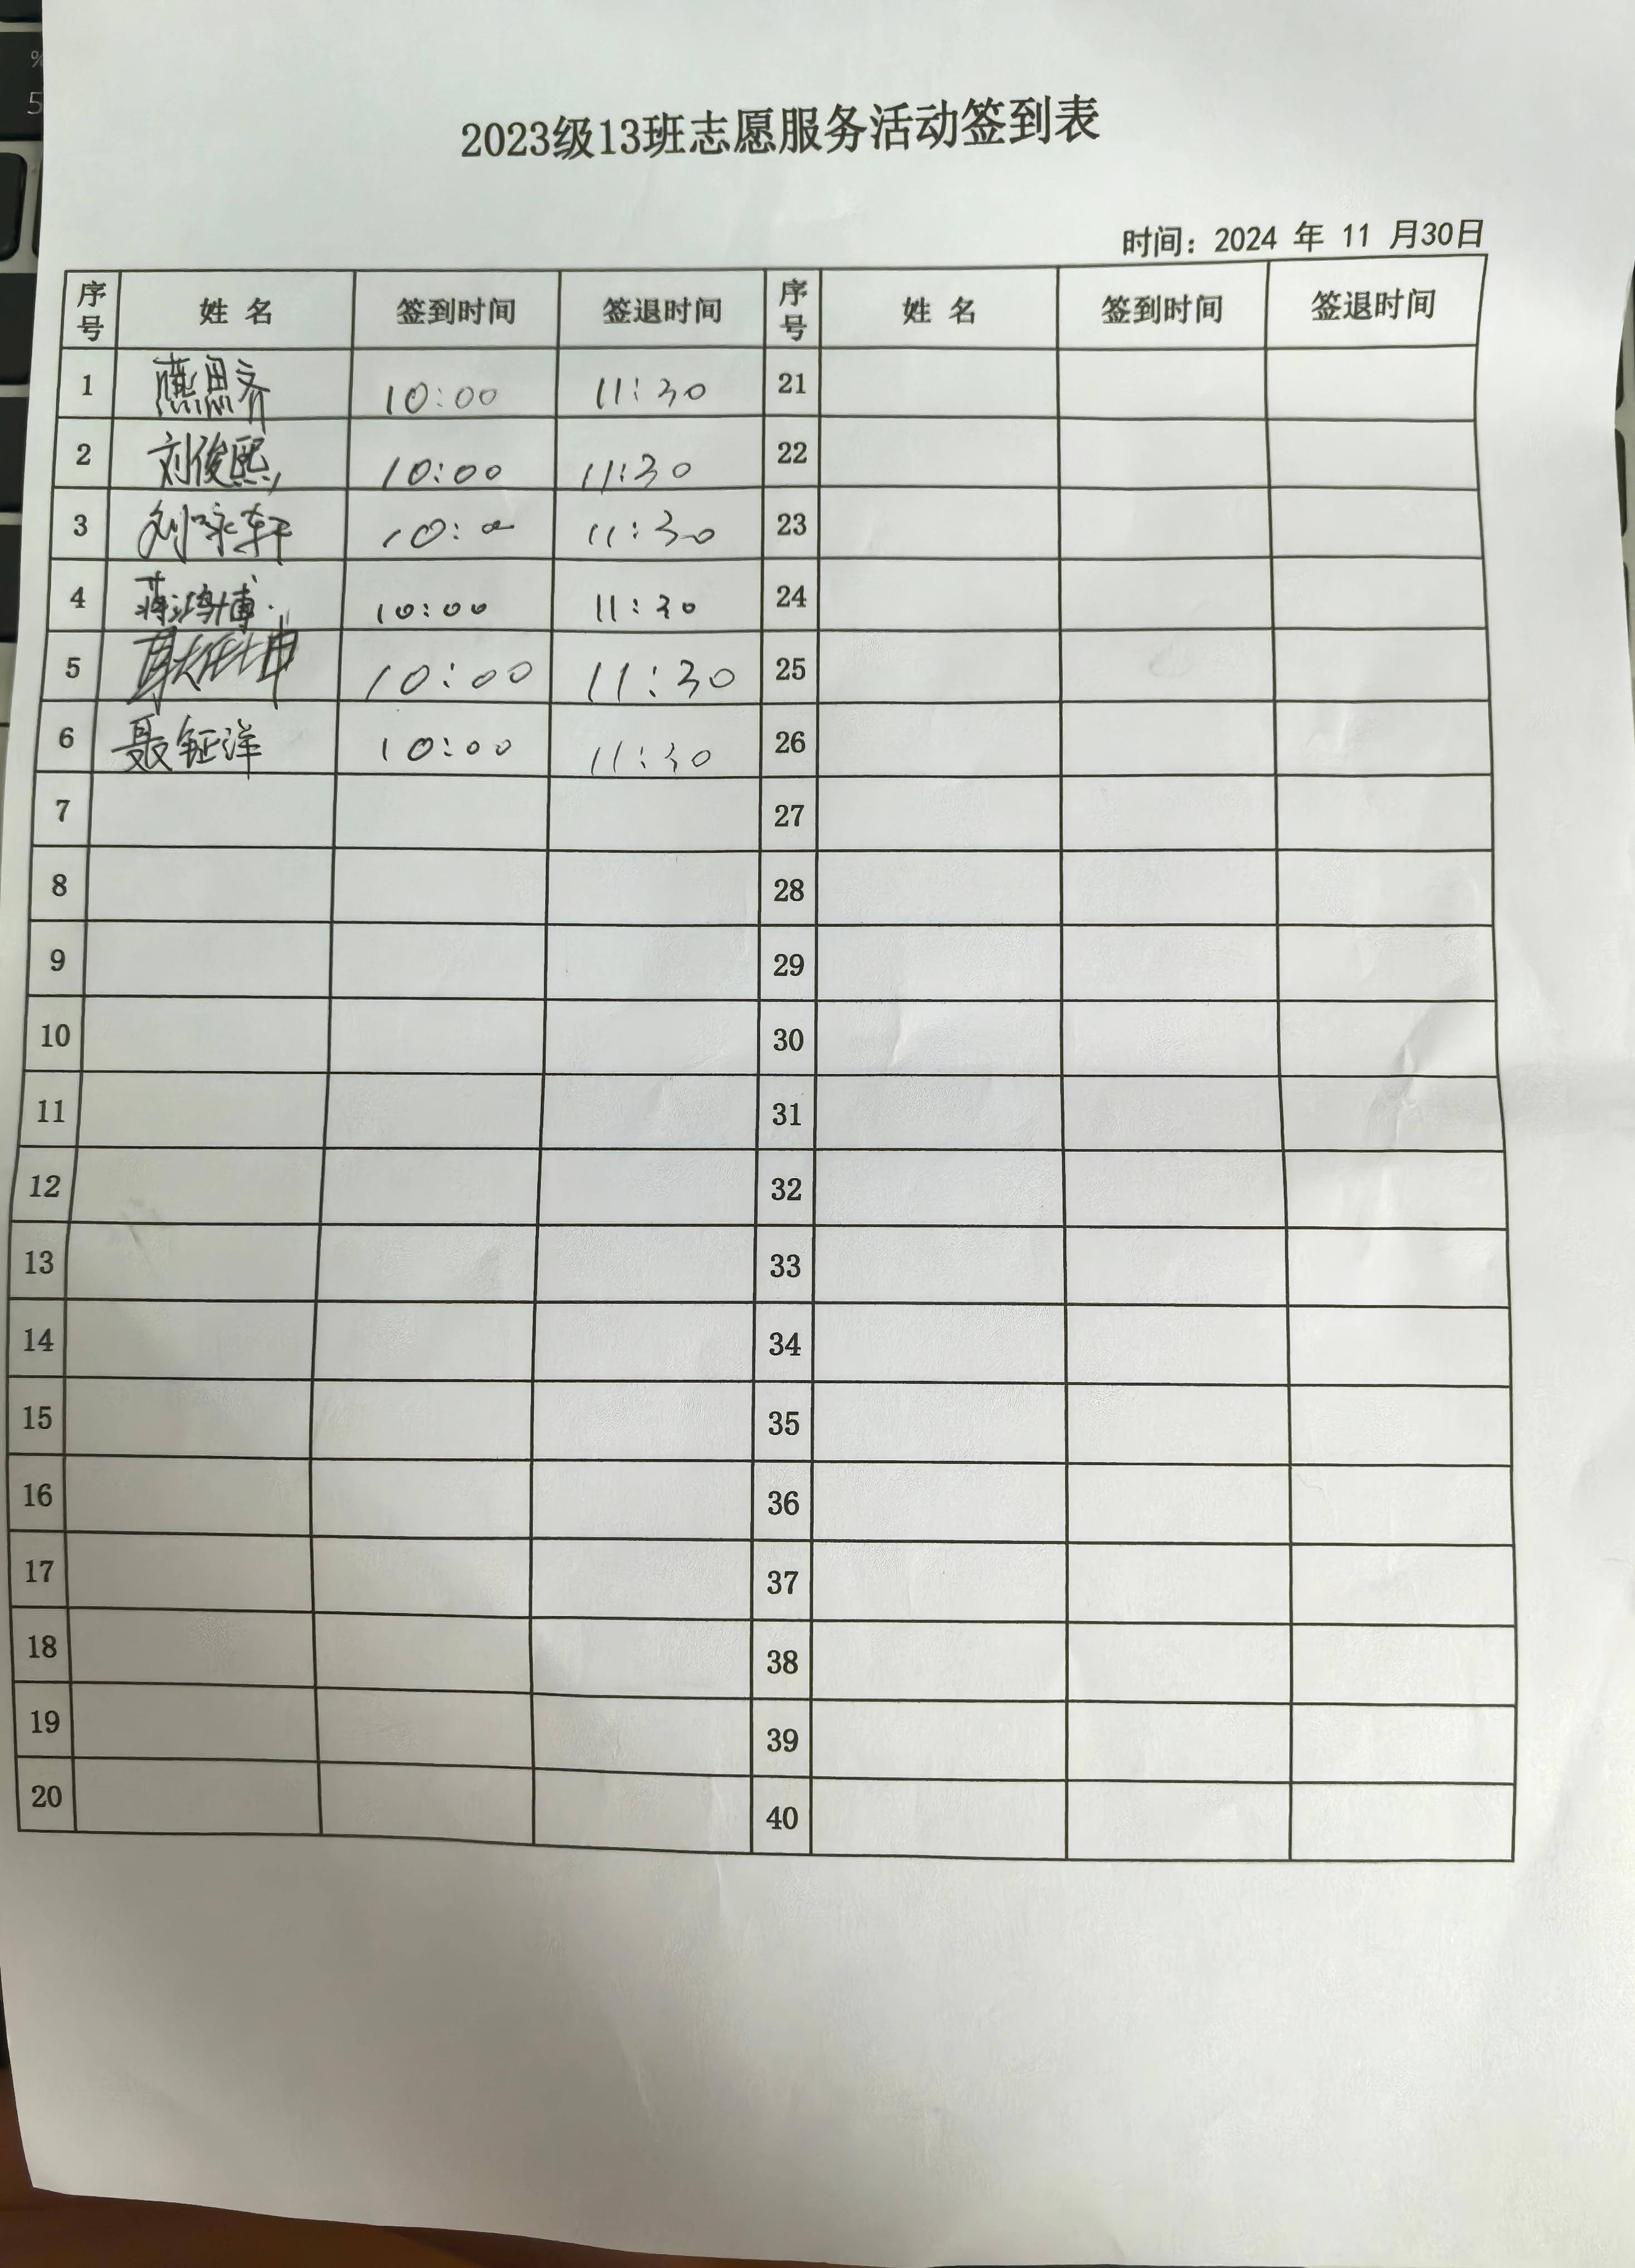 2023级13班志愿服务活动签到表
时间：2024 年 11 月30日
序号 姓 名 签到时间 签退时间 序号 姓 名 签到时间 签退时间
1 10:00 11:30 21
2 刘俊熙 10:00 11:30 22
3 刘咏轩 10:00 11:30 23
4 蒋鸿博 10:00 11:30 24
5 10:00 11:30 25
6 聂钲洋 10:00 11:30 26
7 27
8 28
9 29
10 30
11 31
12 32
13 33
14 34
15 35
16 36
17 37
18 38
19 39
20 40
%
5